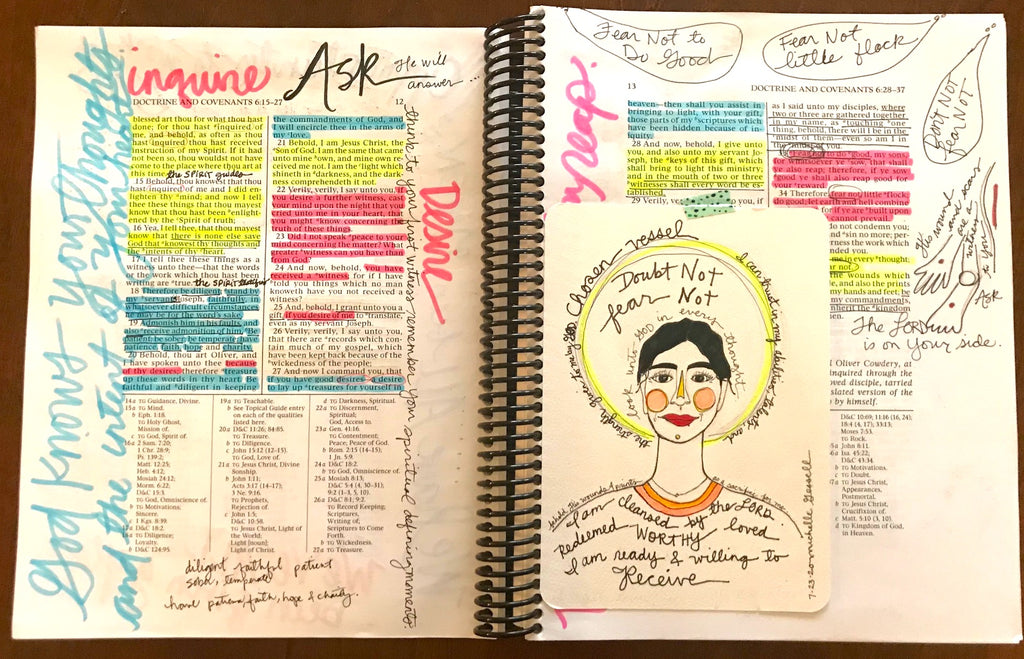 God knows your thoughts
and the intent of your heart
inquire
Ask
He will
answer ...
DOCTRINE AND COVENANTS 6:15–27
12
blessed art thou for what thou hast
done; for thou hast inquired of
me, and behold, as often as thou
hast inquired thou hast received
instruction of my Spirit. If it had
not been so, thou wouldst not have
come to the place where thou art at
this time.
the SPIRIT guides
15 Behold, thou knowest that thou
hast inquired of me and I did en-
lighten thy mind; and now I tell
thee these things that thou mayest
know that thou hast been enlight-
ened by the Spirit of truth;
16 Yea, I tell thee, that thou mayest
know that there is none else save
God that knowest thy thoughts and
the intents of thy heart.
17 I tell thee these things as a
witness unto thee—that the words
or the work which thou hast been
writing are true.
the SPIRIT
18 Therefore be diligent; stand by
my servant Joseph, faithfully, in
whatsoever difficult circumstances
he may be for the word's sake.
19 Admonish him in his faults, and
also receive admonition of him. Be
patient; be sober; be temperate; have
patience, faith, hope and charity.
20 Behold, thou art Oliver, and
I have spoken unto thee because
of thy desires; therefore treasure
up these words in thy heart. Be
faithful and diligent in keeping
the commandments of God, and
I will encircle thee in the arms of
my love.
21 Behold, I am Jesus Christ, the
Son of God. I am the same that came
unto mine own, and mine own re-
ceived me not. I am the light which
shineth in darkness, and the dark-
ness comprehendeth it not.
22 Verily, verily, I say unto you, if
you desire a further witness, cast
your mind upon the night that you
cried unto me in your heart, that
you might know concerning the
truth of these things.
23 Did I not speak peace to your
mind concerning the matter? What
greater witness can you have than
from God?
24 And now, behold, you have
received a witness; for if I have
told you things which no man
knoweth have you not received a
witness?
25 And, behold, I grant unto you a
gift, if you desire of me, to translate,
even as my servant Joseph.
26 Verily, verily, I say unto you,
that there are records which con-
tain much of my gospel, which
have been kept back because of the
wickedness of the people;
27 And now I command you, that
if you have good desires—a desire
to lay up treasures for yourself in
Desire
think to your first witness remember your spiritual defining moments.
14a TG Guidance, Divine.
15a TG Mind.
b Eph. 1:18.
TG Holy Ghost,
Mission of.
c TG God, Spirit of.
16a 2 Sam. 7:20;
1 Chr. 28:9;
Ps. 139:2;
Matt. 12:25;
Heb. 4:12;
Mosiah 24:12;
Morm. 6:22;
D&C 15:3.
TG God, Omniscience of.
b TG Motivations;
Sincere.
c 1 Kgs. 8:39.
17a D&C 18:2.
18a TG Diligence;
Loyalty.
b D&C 124:95.
19a TG Teachable.
b See Topical Guide entry
on each of the qualities
listed here.
20a D&C 11:26; 84:85.
TG Treasure.
b TG Diligence.
c John 15:12 (12–15).
TG God, Love of.
21a TG Jesus Christ, Divine
Sonship.
b John 1:11;
Acts 3:17 (14–17);
3 Ne. 9:16.
TG Prophets,
Rejection of.
c John 1:5;
D&C 10:58.
TG Jesus Christ, Light of
the World;
Light [noun];
Light of Christ.
d TG Darkness, Spiritual.
22a TG Discernment,
Spiritual;
God, Access to.
23a Gen. 41:16.
TG Contentment;
Peace; Peace of God.
b Rom. 2:15 (14–15);
1 Jn. 5:9.
24a D&C 18:2.
b TG God, Omniscience of.
25a Mosiah 8:13;
D&C 5:4 (4, 30–31);
9:2 (1–3, 5, 10).
26a D&C 8:1; 9:2.
TG Record Keeping;
Scriptures,
Writing of;
Scriptures to Come
Forth.
b TG Wickedness.
27a TG Treasure.
diligent faithful patient
sober, temperate
have patience, faith, hope & charity.
Fear Not to
Do Good
Fear Not
little flock
Doubt Not
Fear NOT
reap.
13
DOCTRINE AND COVENANTS 6:28–37
heaven—then shall you assist in
bringing to light, with your gift,
those parts of my scriptures which
have been hidden because of in-
iquity.
28 And now, behold, I give unto
you, and also unto my servant Jo-
seph, the keys of this gift, which
shall bring to light this ministry;
and in the mouth of two or three
witnesses shall every word be es-
tablished.
29 Verily, ver
as I said unto my disciples, where
two or three are gathered together
in my name, as touching one
thing, behold, there will I be in the
midst of them—even so am I in
the midst of you.
33 Fear not to do good, my sons,
for whatsoever ye sow, that shall
ye also reap; therefore, if ye sow
good ye shall also reap good for
your reward.
34 Therefore, fear not, little flock;
do good; let earth and hell combine
for if ye are built upon
cannot prevail.
do not condemn you;
and sin no more; per-
rness the work which
ded you.
me in every thought;
ar not.
the wounds which
and also the prints
hands and feet; be
my commandments,
inherit the kingdom
His wounds
and scars
are a
witness
to You
Ask
The LORD
is on your side.
Oliver Cowdery, at
inquired through the
oved disciple, tarried
nslated version of the
by himself.
D&C 10:69; 11:16 (16, 24);
18:4 (4, 17); 33:13;
Moses 7:53.
TG Rock.
35a John 8:11.
b Isa. 45:22;
D&C 43:34.
b TG Motivations.
c TG Doubt.
37a TG Jesus Christ,
Appearances,
Postmortal.
b TG Jesus Christ,
Crucifixion of.
c Matt. 5:10 (3, 10).
d TG Kingdom of God,
in Heaven.
chosen vessel
Doubt Not
fear Not
look unto GOD in every thought
I am cleansed by the LORD
Redeemed WORTHY loved
I am ready & willing to
Receive
7-23-20 michelle gessell